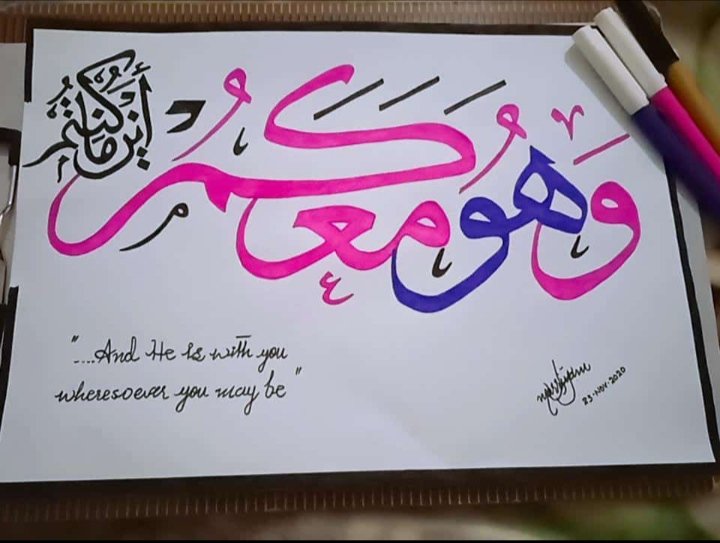 وَهُوَ مَعَكُمْ
أَيْنَ مَا كُنْتُمْ
"....And He is with you
wheresoever you may be"
23-NOV-2020